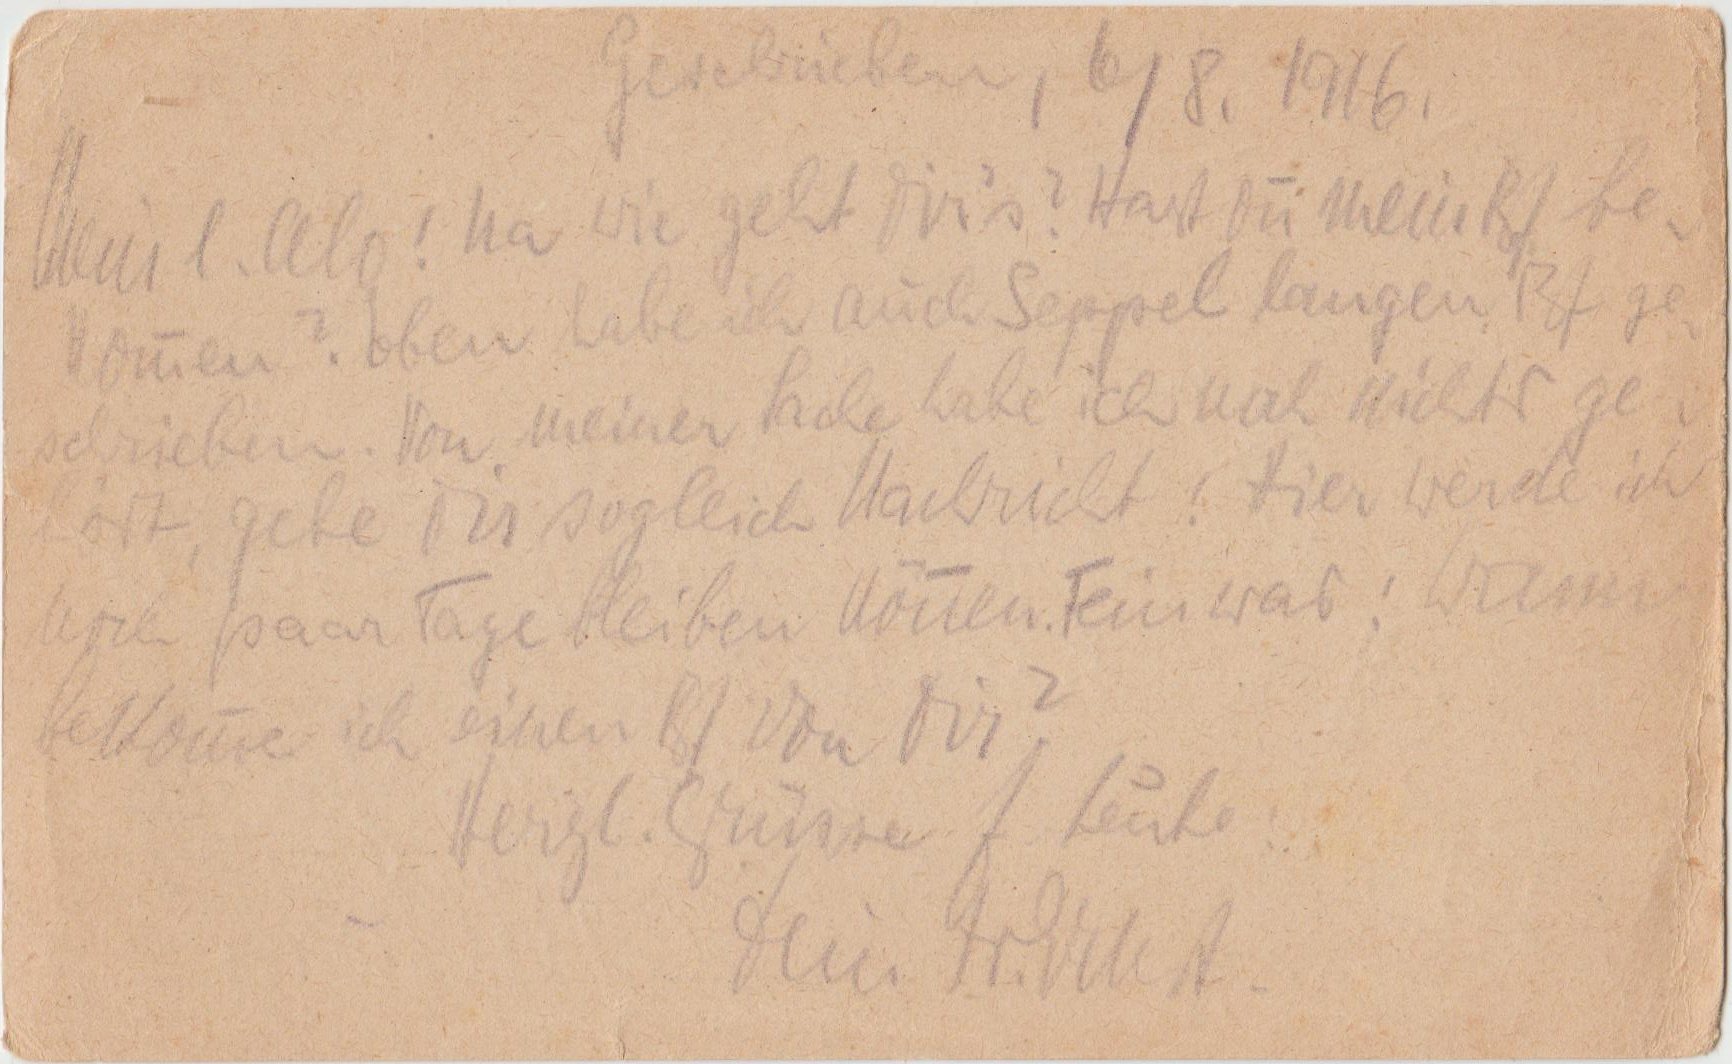 Geschrieben, 6/8. 1916.
Mein l. Alo! Na wie geht Dir's? Hast Du mein Bf be-
kom̄en? Eben habe ich auch Seppel langen Bf ge-
schrieben. Von meiner Sache habe ich noch nichts ge-
hört, gebe Dir sogleich Nachricht! Hier werde ich
noch paar Tage bleiben kön̄en. Fein was! Wann
bekom̄e ich einen Bf von Dir?
Herzl. Grüsse f. heute
Dein